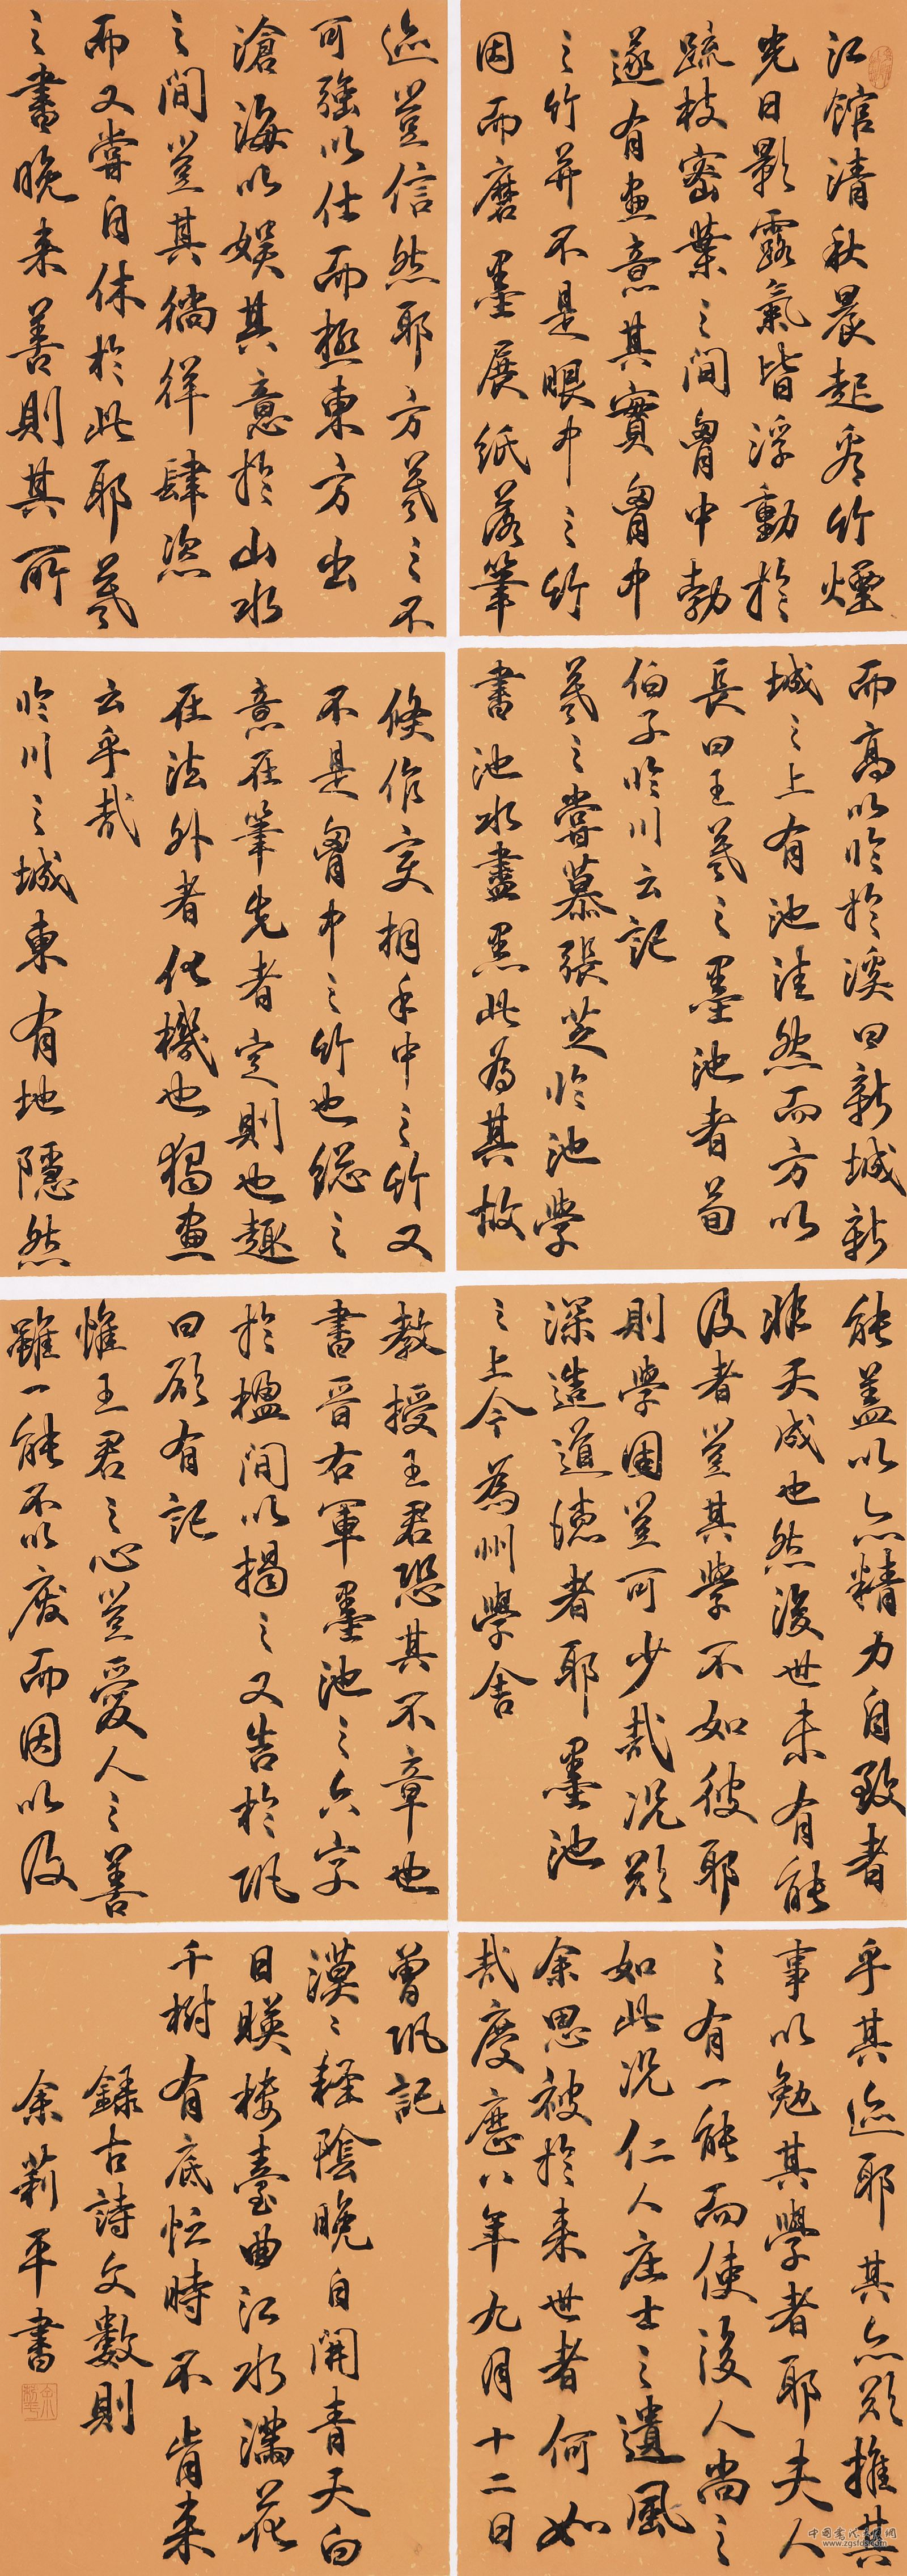 江館清秋晨起看竹煙
光日影露氣皆浮動於
疏枝密葉之間胷中勃
遂有畫意其實胷中
之竹并不是眼中之竹
因而磨墨展紙落筆
倏作變相手中之竹又
不是胷中之竹也總之
意在筆先者定則也趣
在法外者化機也獨畫
云乎哉
臨川之城東有地隱然
而高以臨於溪曰新城新
城之上有池洼然而方以
長曰王羲之墨池者荀
伯子臨川云記
羲之嘗慕張芝臨池學
書池水盡黑此為其故
迹豈信然耶方羲之不
可強以仕而極東方出
滄海以娛其意於山水
之間豈其徜徉肆恣
而又嘗自休於此耶羲
之書晚来善則其所
能蓋以亦精力自致者
非天成也然後世未有能
及者豈其學不如彼耶
則學固豈可少哉況欲
深造道德者耶墨池
之上今為州學舍
教授王君恐其不章也
書晉右軍墨池之六字
於楹間以揭之又告於巩
曰願有記
惟王君之心豈愛人之善
雖一能不以廢而因以及
乎其迹耶其亦欲推其
事以勉其學者耶夫人
之有一能而使後人尚之
如此況仁人莊士之遺風
余思被於来世者何如
哉慶歷八年九月十二日
曾巩記
漠々輕陰晚自開青天白
日暎樓臺曲江水滿花
千樹有底忙時不肯来
錄古詩文數則
余莉平書
www.zgsfds.com